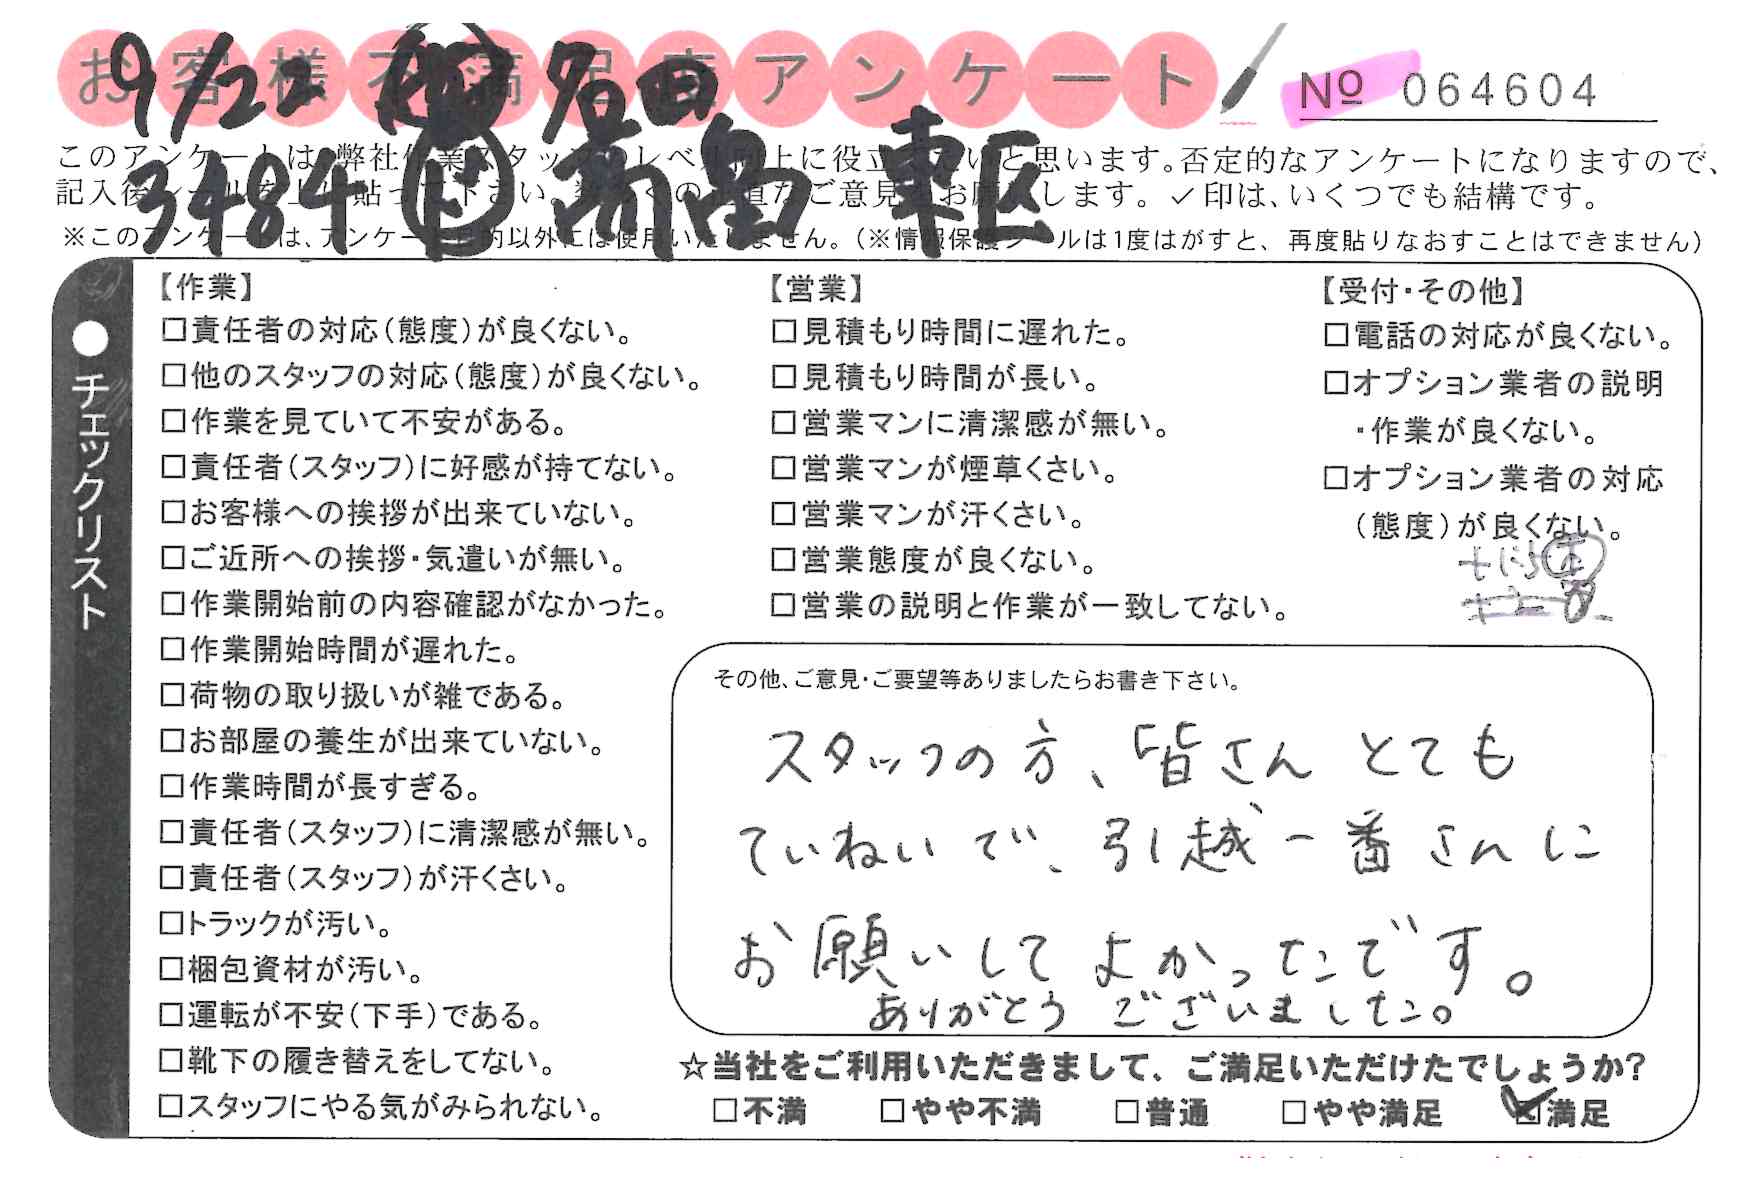 お客様不満足度アンケート
№ 064604
9/22 名田
3484 高畠 東区
このアンケートは、弊社作業スタッフのレベル向上に役立てたいと思います。否定的なアンケートになりますので、
記入後シールを上に貼って下さい。数多くの正直なご意見をお願いします。✓印は、いくつでも結構です。
※このアンケートは、アンケート目的以外には使用いたしません。(※情報保護シールは1度はがすと、再度貼りなおすことはできません)
●チェックリスト
【作業】
□責任者の対応(態度)が良くない。
□他のスタッフの対応(態度)が良くない。
□作業を見ていて不安がある。
□責任者(スタッフ)に好感が持てない。
□お客様への挨拶が出来ていない。
□ご近所への挨拶・気遣いが無い。
□作業開始前の内容確認がなかった。
□作業開始時間が遅れた。
□荷物の取り扱いが雑である。
□お部屋の養生が出来ていない。
□作業時間が長すぎる。
□責任者(スタッフ)に清潔感が無い。
□責任者(スタッフ)が汗くさい。
□トラックが汚い。
□梱包資材が汚い。
□運転が不安(下手)である。
□靴下の履き替えをしてない。
□スタッフにやる気がみられない。
【営業】
□見積もり時間に遅れた。
□見積もり時間が長い。
□営業マンに清潔感が無い。
□営業マンが煙草くさい。
□営業マンが汗くさい。
□営業態度が良くない。
□営業の説明と作業が一致してない。
【受付・その他】
□電話の対応が良くない。
□オプション業者の説明
・作業が良くない。
□オプション業者の対応
(態度)が良くない。
その他、ご意見・ご要望等ありましたらお書き下さい。
スタッフの方、皆さん とても
ていねいで、引越一番さんに
お願いして よかったです。
ありがとう ございました。
☆当社をご利用いただきまして、ご満足いただけたでしょうか?
□不満 □やや不満 □普通 □やや満足 ☑満足